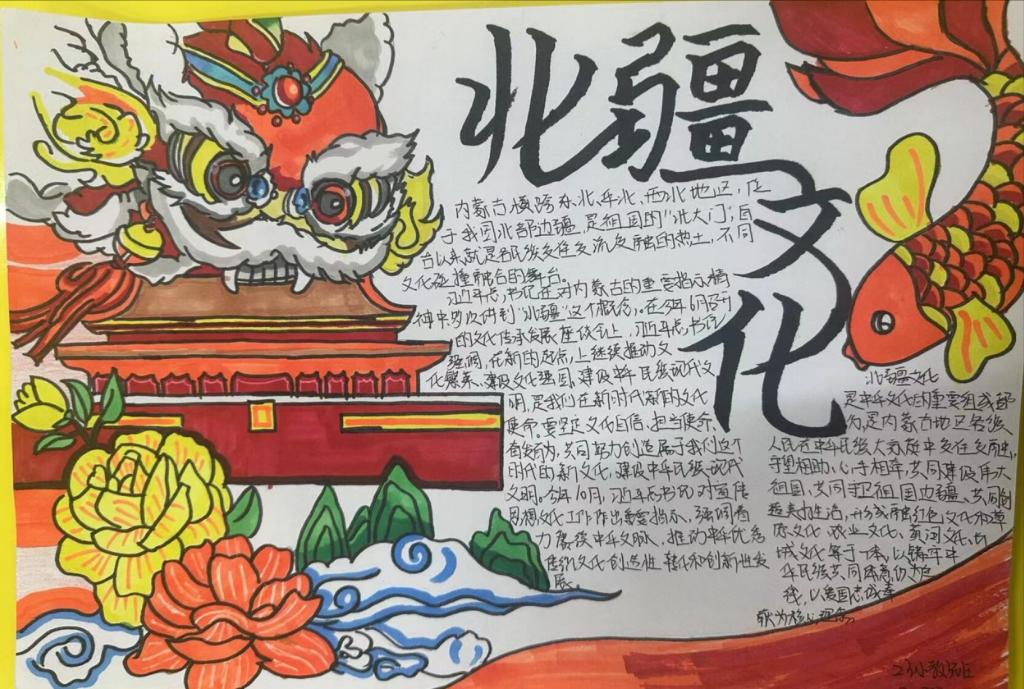 北疆
文化
内蒙古横跨东北、华北、西北地区，位
于我国北部边疆，是祖国的"北大门"，自
古以来就是各民族交往交流交融的热土，不同
文化碰撞融合的舞台。
习近平总书记在对内蒙古的重要指示精
神中多次讲到"北疆"这个概念。在今年6月
的文化传承发展座谈会上，习近平总书记
强调，在新的起点上继续推动文
化繁荣、建设文化强国、建设中华民族现代文
明，是我们在新时代新的文化
使命。要坚定文化自信、担当使命、
奋发有为，共同努力创造属于我们这个
时代的新文化，建设中华民族现代
文明。今年10月，习近平总书记对宣传
思想文化工作作出重要指示，强调着
力赓续中华文脉、推动中华优秀
传统文化创造性转化和创新性发
展。
北疆文化
是中华文化的重要组成部
分，是内蒙古地区各族
人民在中华民族大家庭中交往交融，
守望相助、心手相牵，共同建设伟大
祖国、共同守卫祖国边疆、共同创
造美好生活，形成融红色文化和草
原文化、农业文化、黄河文化、长
城文化等于一体，以铸牢中
华民族共同体意识为
我，以爱国忠诚奉
献为核心理念